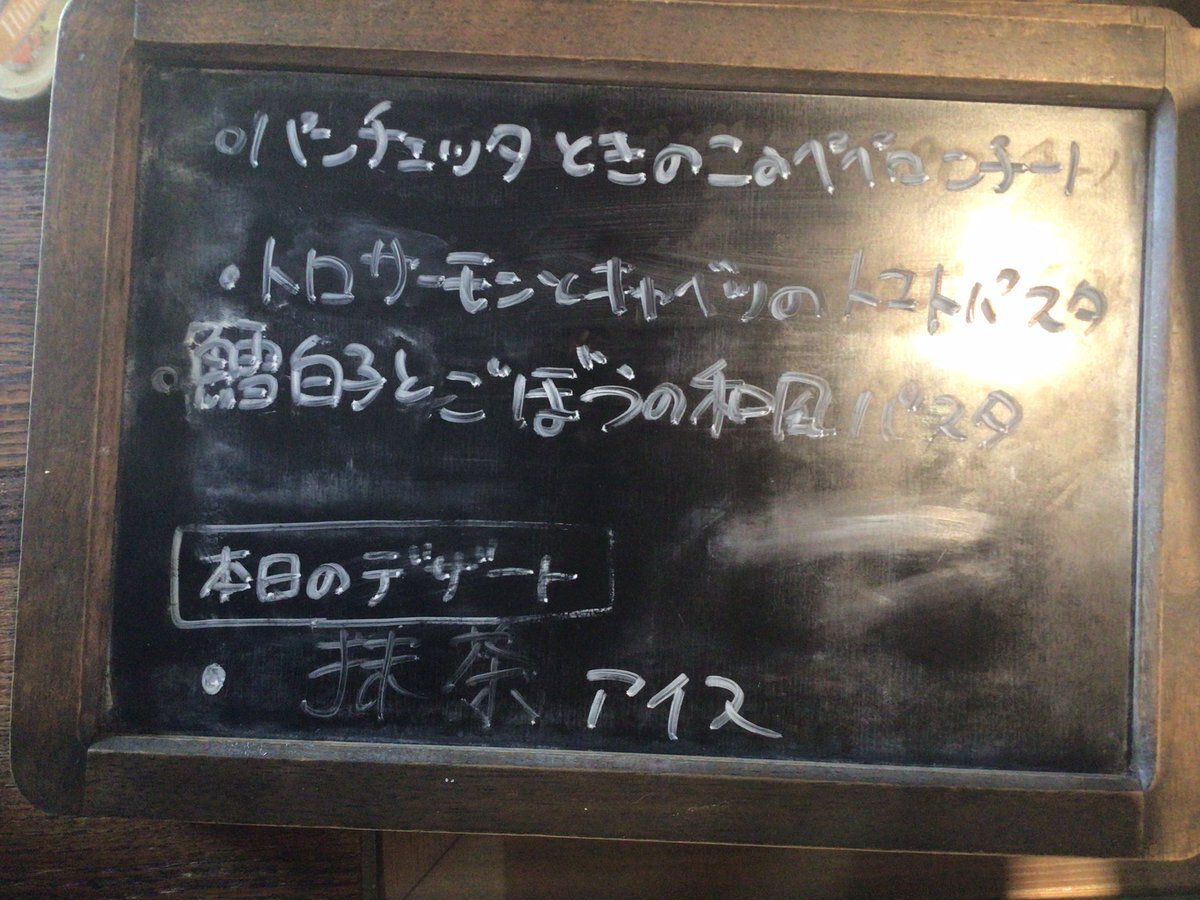 ・パンチェッタときのこのペペロンチーノ
・トロサーモンとキャベツのトマトパスタ
・鱈白子とごぼうの和風パスタ
本日のデザート
・抹茶アイス